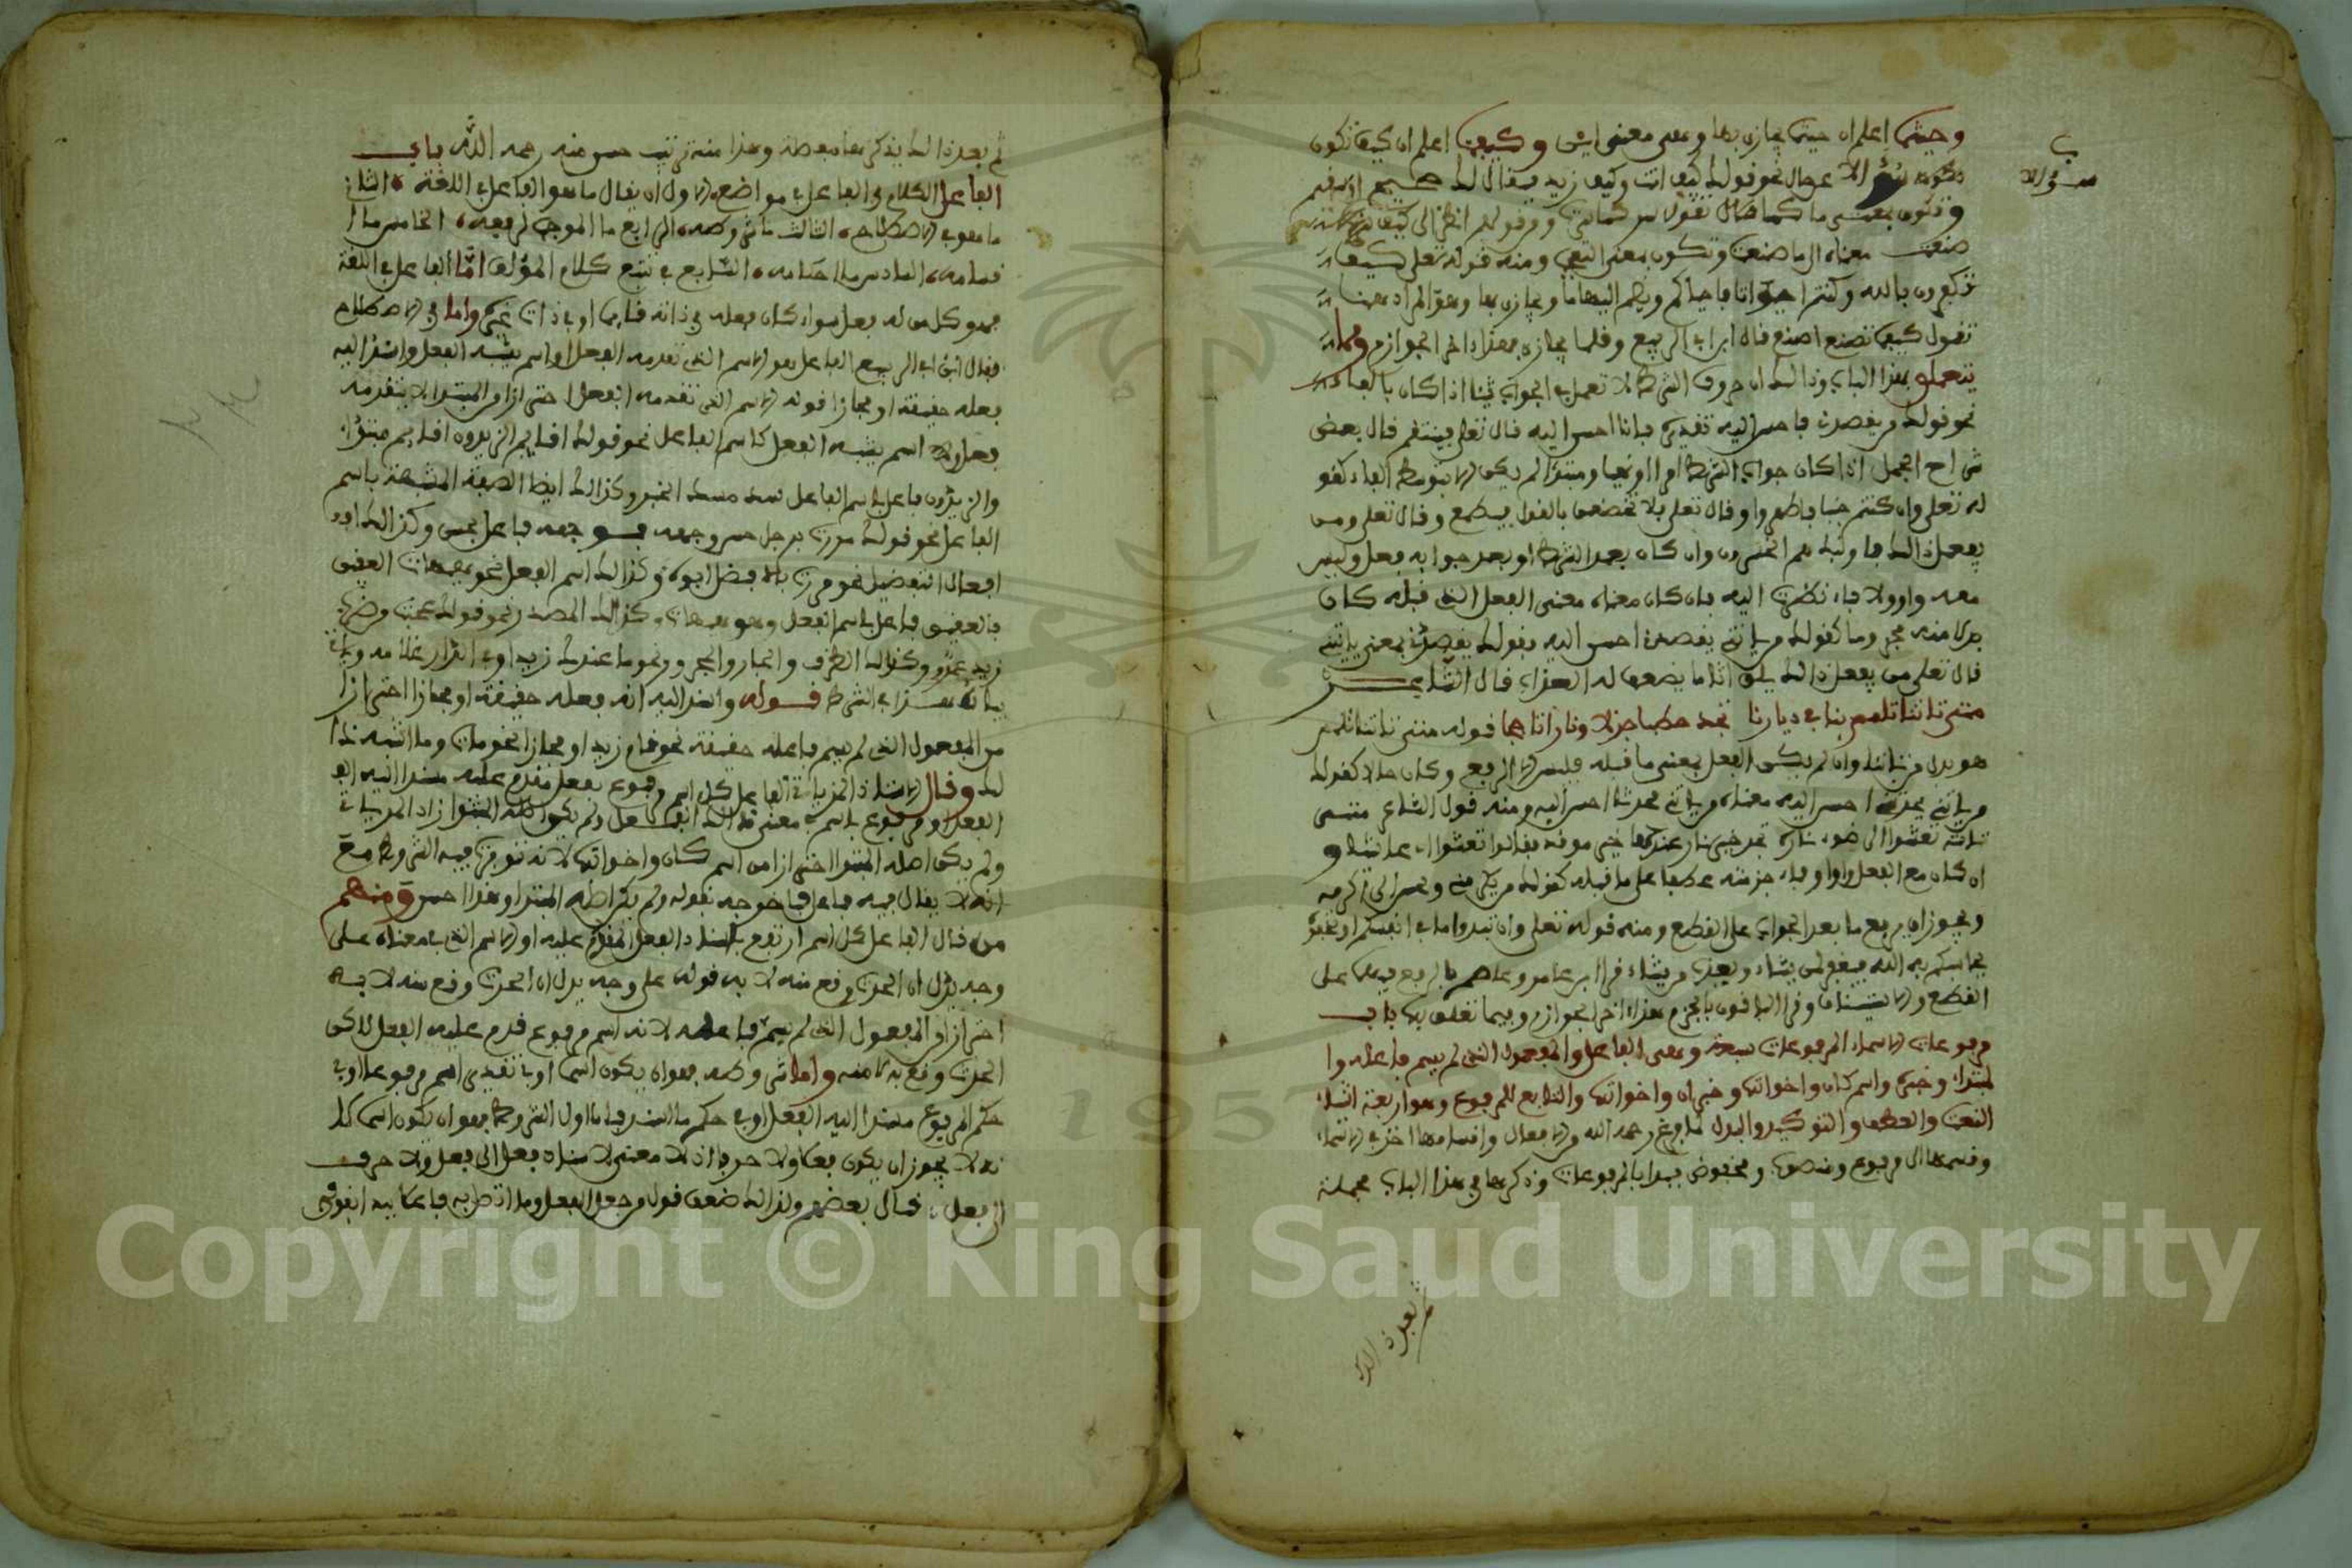 وحيثما اعلم ان حيثما يجازى بها وهى بمعنى اين وكيف اعلم ان كيف تكون
سؤالا
تكون سؤالا عن حال نحو قولك كيف انت وكيف زيد فيقال لك صحيح او سقيم
وتكون بمعنى كما تقول ومن قولهم انظر الى كيف
صنعت معناه الى ما صنعت وتكون بمعنى التعجب ومنه قوله تعلى كيف
تكفرون بالله وكنتم امواتا فاحياكم ويجازى بها وهو المراد هنا
تقول كيف تصنع اصنع قال ابن ابى الربيع وقلما يجازى بهذا اخر الجوازم ومما
يتعلق بهذا الباب وذالك ان حروف الشرط لا تعمل فى الجواب شيئا اذا كان بالفاء
نحو قولك من يقصدك فاحسن اليه تقديره فانا احسن اليه قال تعلى فينتقم قال بعض
شراح الجمل اذا كان جواب الشرط امرا او نهيا او مبتدا لم يكن الا بتوسط الفاء كقو
له تعلى وان كنتم جنبا فاطهروا وقال تعلى فلا تخضعن بالقول فيطمع وقال تعلى ومن
يفعل ذالك فاولئك هم الخسرون وان كان بعد الشرط او بعد جوابه فعل وليس
معه واو ولا فاء نظرت اليه فان كان معناه معنى الفعل الذى قبله كان
بدلا منه مجزوما كقولك من ياتنى يقصدنى احسن اليه فقولك يقصدنى بمعنى ياتنى
قال تعلى من يفعل ذالك يلق اثاما يضعف له العذاب قال الشاعر
متى تاتنا تلمم بنا فى ديارنا تجد حطبا جزلا ونارا تاججا قوله متى تاتنا تلمم
هو بدل من تاتنا وان لم يكن الفعل بمعنى ما قبله فليس الا الرفع وكان حالا كقولك
من ياتنى يحدثنى احسن اليه معناه من ياتنى محدثا احسن اليه ومنه قول الشاعر متى
تاته تعشوا الى ضوء ناره تجد خير نار عندها خير موقد فقالوا تعشوا اى عاشيا و
ان كان مع الفعل واو او فاء جزمته عطفا على ما قبله كقولك من يكرمنى ويحسن الى اكرمه
ويجوز ان يرفع ما بعد الجواب على القطع ومنه قوله تعلى وان تبدوا ما فى انفسكم او تخفوه
يحاسبكم به الله فيغفر لمن يشاء ويعذب من يشاء قرا ابن عامر وعاصم بالرفع فيهما على
القطع والاستيناف وقرا الباقون بالجزم هذا اخر الجوازم وبما تعلق بها باب
مرفوعات الاسماء المرفوعات سبعة وهى الفاعل والمفعول الذى لم يسم فاعله وا
لمبتدا وخبره واسم كان واخواتها وخبر ان واخواتها والتابع للمرفوع وهو اربعة اشياء
النعت والعطف والتوكيد والبدل لما فرغ رحمه الله من الافعال واقسامها اخذ فى الاسماء
وقسمها الى مرفوع ومنصوب ومخفوض فبدا بالمرفوعات وذكرها فى هذا الباب مجملة
ثم بعد ذالك
ثم بعد ذالك يذكرها مفصلة وهذا منه ترتيب حسن منه رحمه الله باب
الفاعل الكلام فى الفاعل فى مواضع الاول ان يقال ما هو الفاعل فى اللغة الثانى
ما هو فى الاصطلاح الثالث ما شروطه الرابع ما الموجب لرفعه الخامس ما ا
قسامه السادس ما احكامه السابع فى تتبع كلام المؤلف اما الفاعل فى اللغة
فهو كل من له فعل سواء كان فعله فى ذاته قايما او فى ذات غيره واما فى الاصطلاح
فقال ابن ابى الربيع الفاعل هو الاسم الذى تقدمه الفعل او اسم يشبه الفعل واسند اليه
فعله حقيقة او مجازا قوله الاسم الذى تقدمه الفعل احترازا من المبتدا لا يتقدمه
فعل وقوله اسم يشبه الفعل كاسم الفاعل نحو قولك اقايم الزيدون اقايم مبتدا
والزيدون فاعل باسم الفاعل سد مسد الخبر وكذالك ايضا الصفة المشبهة باسم
الفاعل نحو قولك مررت برجل حسن وجهه فوجهه فاعل بحسن وكذالك
افعال التفضيل نحو مررت بافضل ابوه وكذالك اسم الفعل نحو هيهات العقيق
فالعقيق فاعل باسم الفعل وهو هيهات وكذالك المصدر نحو قولك عجبت من ضرب
زيد عمرو وكذالك الظرف والجار والمجرور نحو ما عندك زيد او فى الدار غلامه وياتى
بيانه هذا فى الشرط قوله واسند اليه اى فعله حقيقة او مجازا احترازا
من المفعول الذى لم يسم فاعله حقيقة نحو قام زيد او مجازا نحو مات وما اشبه ذا
لك وقال الاستاذ الفاعل كل اسم مرفوع بفعل مقدم عليه مسندا اليه
الفعل او مرفوع باسم فى معنى ذالك الفعل ولم يكن اصله المبتدا زاد
ولم يكن اصله المبتدا احترازا من اسم كان واخواتها لانه تتوفر فيه الشروط مع
انه لا يقال فيه فاعل فاخرجه بقوله ولم يكن اصله المبتدا وهذا احسن ومنهم
من قال الفاعل كل اسم ارتفع باسناد الفعل المقدم عليه او الاسم الذى بمعناه على
وجه يدل ان الحدث وقع منه لا به قوله على وجه يدل ان الحدث وقع منه لا به
احترازا من المفعول الذى لم يسم فاعله لانه اسم مرفوع قدم عليه الفعل لاكن
الحدث وقع به لا منه واما شروطه فهو ان يكون اسما او فى تقديره اسم مرفوعا او فى
حكم المرفوع مسندا اليه الفعل او فى حكم ما اسند فاما اول الشروط فهو ان يكون اسما
نه لا يجوز ان يكون فعلا ولا حرفا اذ لا معنى لاسناد فعل الى فعل ولا حرف
الى فعل قال بعضهم ولذالك ضعف قول من جعل الفعل وما اتصل به فاعلا